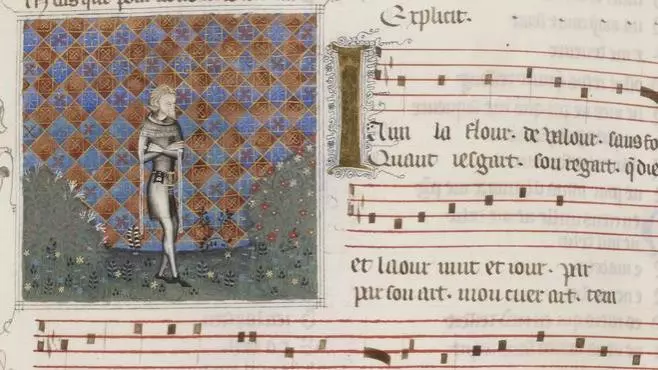 Mais que pour
Explicit.
I Aim la flour. de valour. sans fo
Quant iesgart. son regart. q̃ die
et laour nuit et iour. par
par son art. mon cuer art. tem